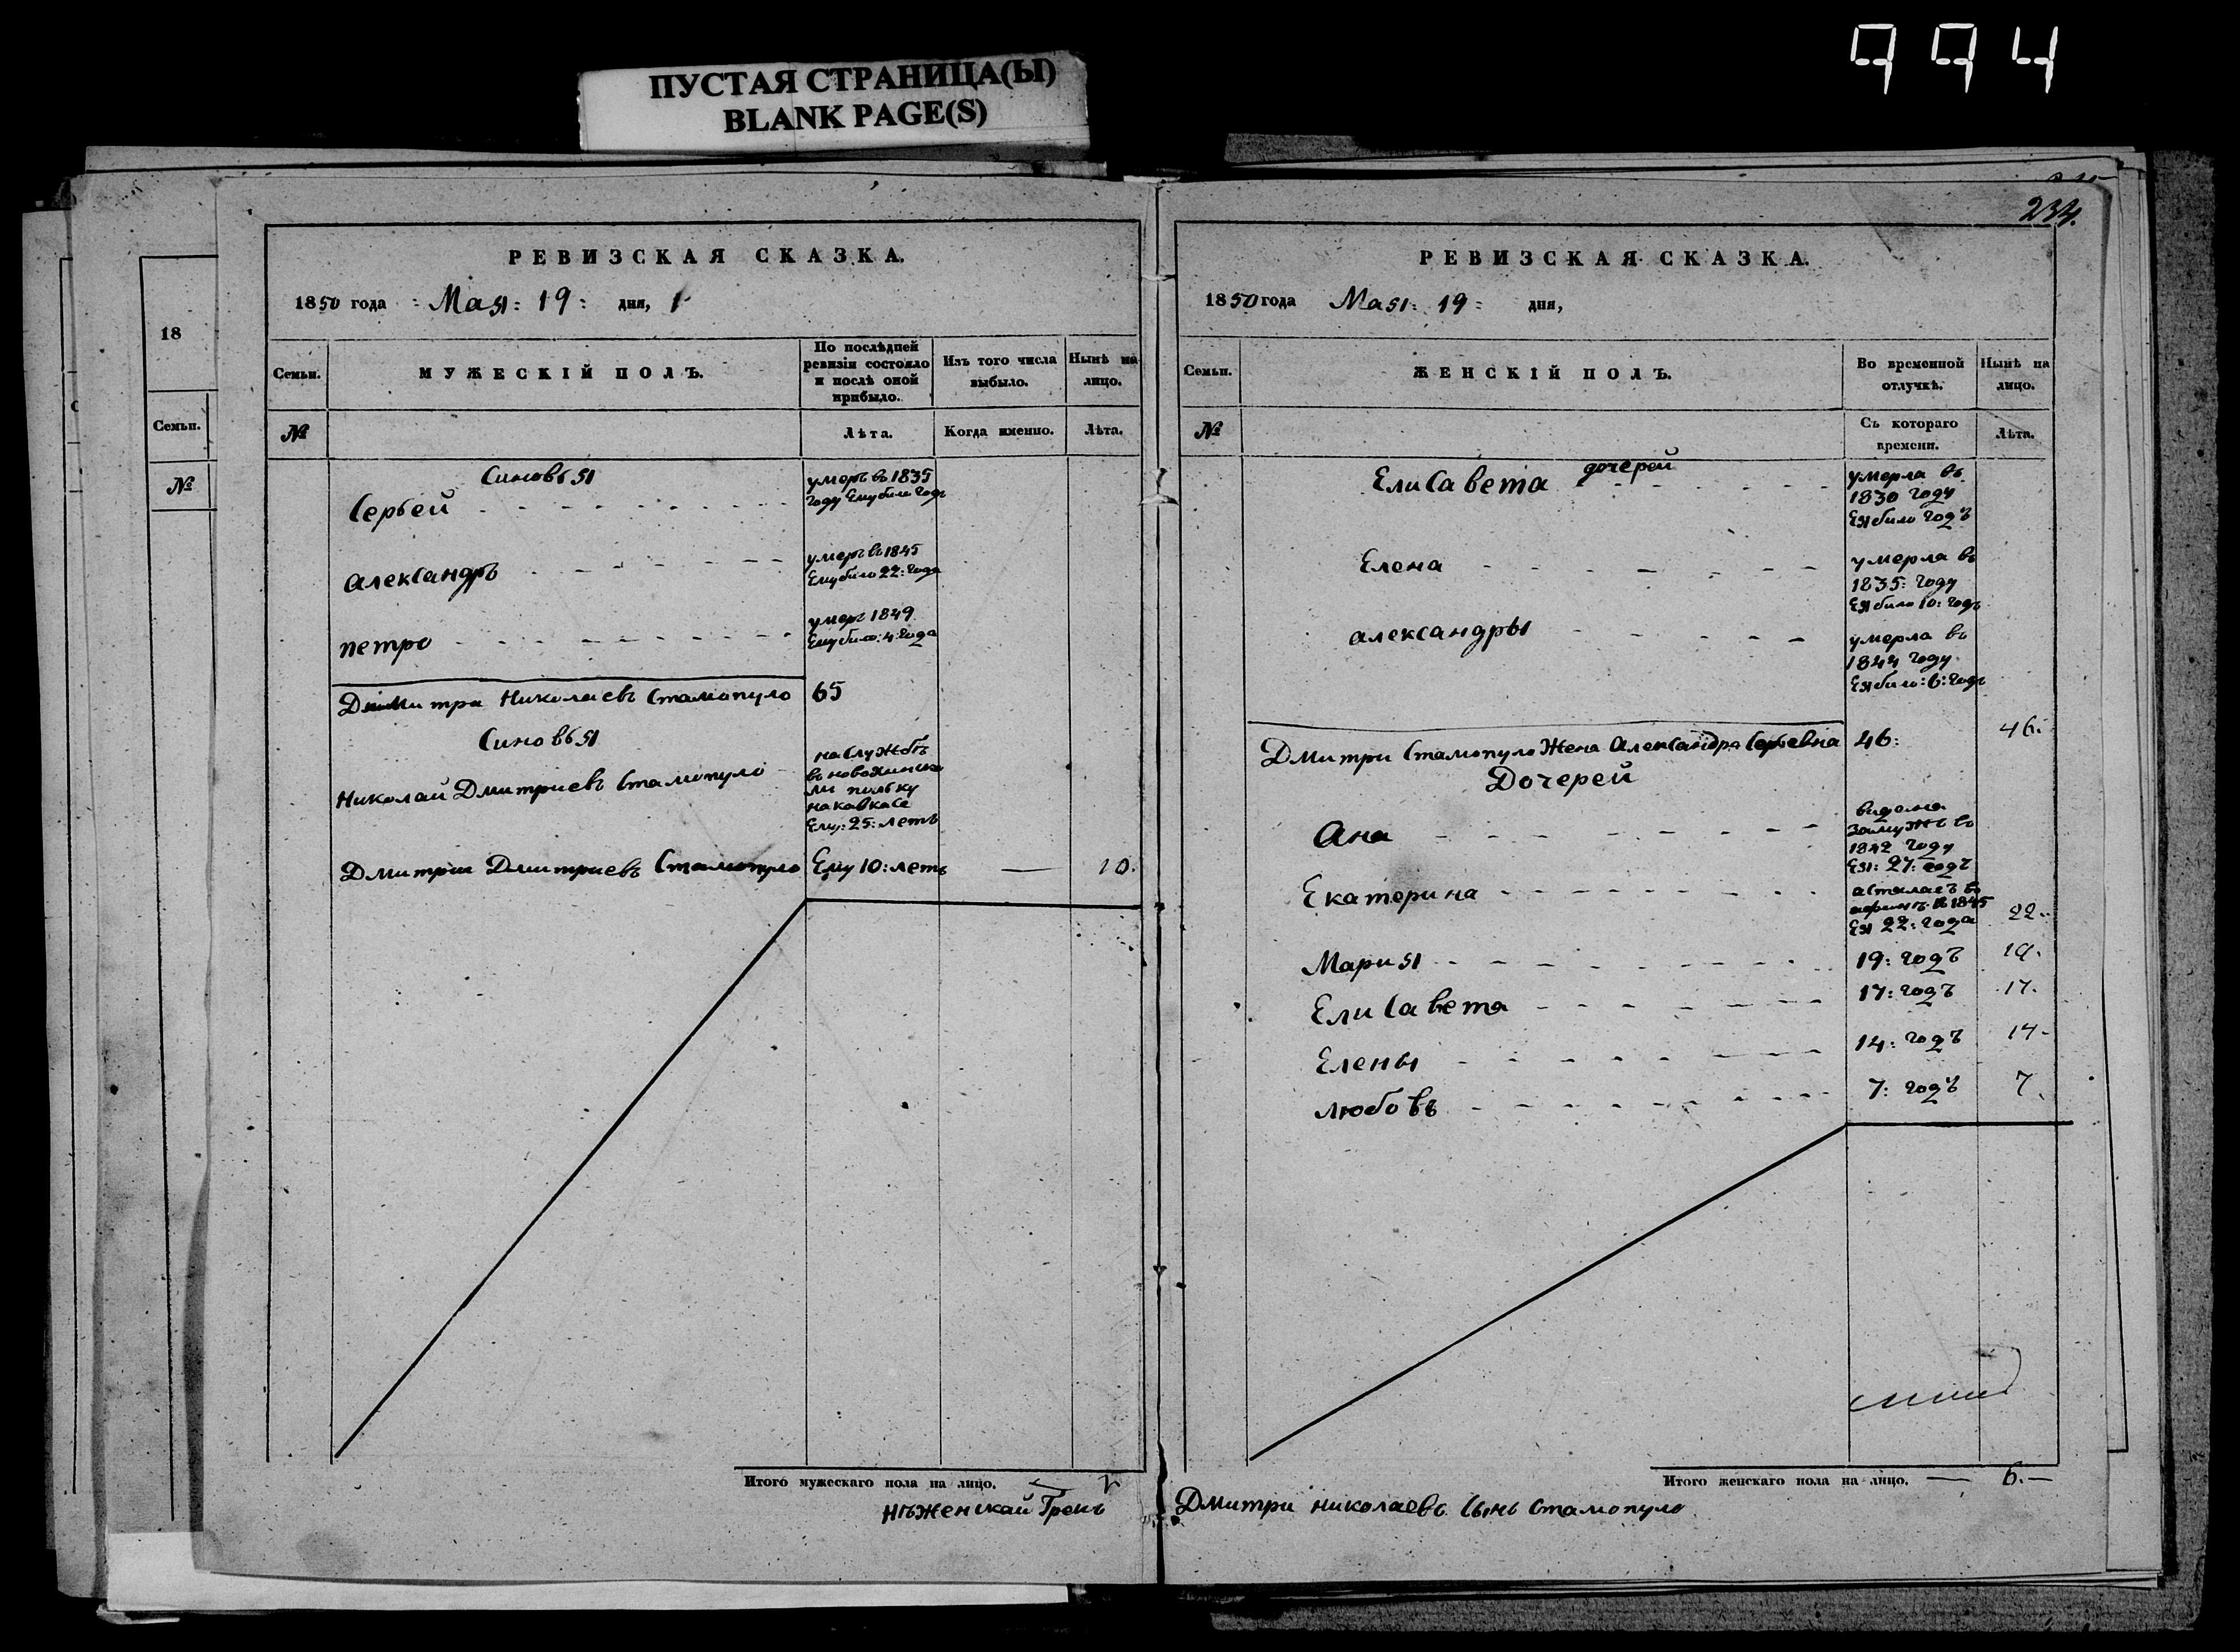 994
ПУСТАЯ СТРАНИЦА(Ы)
BLANK PAGE(S)
18
Семьи.
№
РЕВИЗСКАЯ СКАЗКА.
1850 года Мая: 19: дня,
Семьи.
МУЖЕСКІЙ ПОЛЪ.
По послѣдней
ревизіи состояло
и послѣ оной
прибыло.
Изъ того числа
выбыло.
Нынѣ на
лицо.
№
Лѣта.
Когда именно.
Лѣта.
Синовья
Сергей
умеръ въ 1835
году Ему било годъ
александръ
умеръ въ 1845
Ему било 22: года
петро
умеръ 1849
Ему било: 4: года
Дмитри Николаевъ Стамопуло 65
Синовья
Николаи Дмитриевъ Стамопуло
на Службъ
полку
на кавкасе
Ему: 25: летъ
Дмитрии Дмитриевъ Стамопуло Ему 10: летъ — 10.
Итого мужескаго пола на лицо.
нѣженскай Грекъ
234.
РЕВИЗСКАЯ СКАЗКА.
1850 года Мая: 19: дня,
Семьи.
ЖЕНСКІЙ ПОЛЪ.
Во временной
отлучкѣ.
Нынѣ на
лицо.
№
Съ котораго
времени.
Лѣта.
дочерей
ЕлиСавета
умерла въ
1830 году
Ея било годъ
Елена
умерла въ
1835: году
Ея било 10: годъ
александры
умерла въ
1844 году
Ея било: 6: годъ
Дмитри Стамопуло Жена АлекСандра Сергевна 46: 46.
Дочерей
Ана
видана
замужъ въ
1842 году
Ея: 27: годъ
Екатерина
Ея 22: года 22.
Мария 19: годъ 19.
ЕлиСавета 17: годъ 17.
Елены 14: годъ 14
любовъ 7: годъ 7.
Итого женскаго пола на лицо. — 6.—
Дмитри николаевъ Сынъ Стамопуло